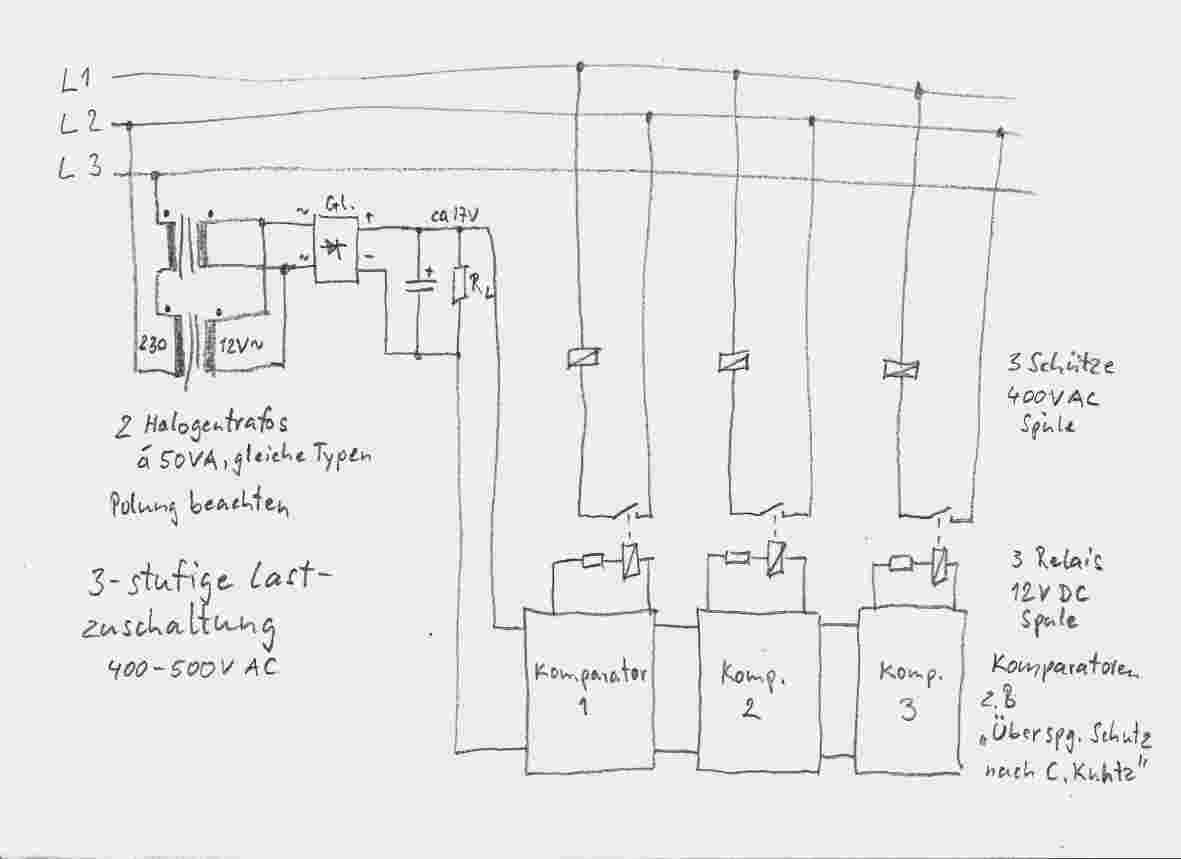 L1
L2
L3
Gl.
~
+
ca 17V
~
-
+
RL
230
12V~
2 Halogentrafos
á 50VA, gleiche Typen
Polung beachten
3-stufige Last-
zuschaltung
400-500V AC
3 Schütze
400VAC
Spule
3 Relais
12V DC
Spule
Komparator
1
Komp.
2
Komp.
3
Komparatoren
z.B
„Überspg. Schutz
nach C. Kuhtz"